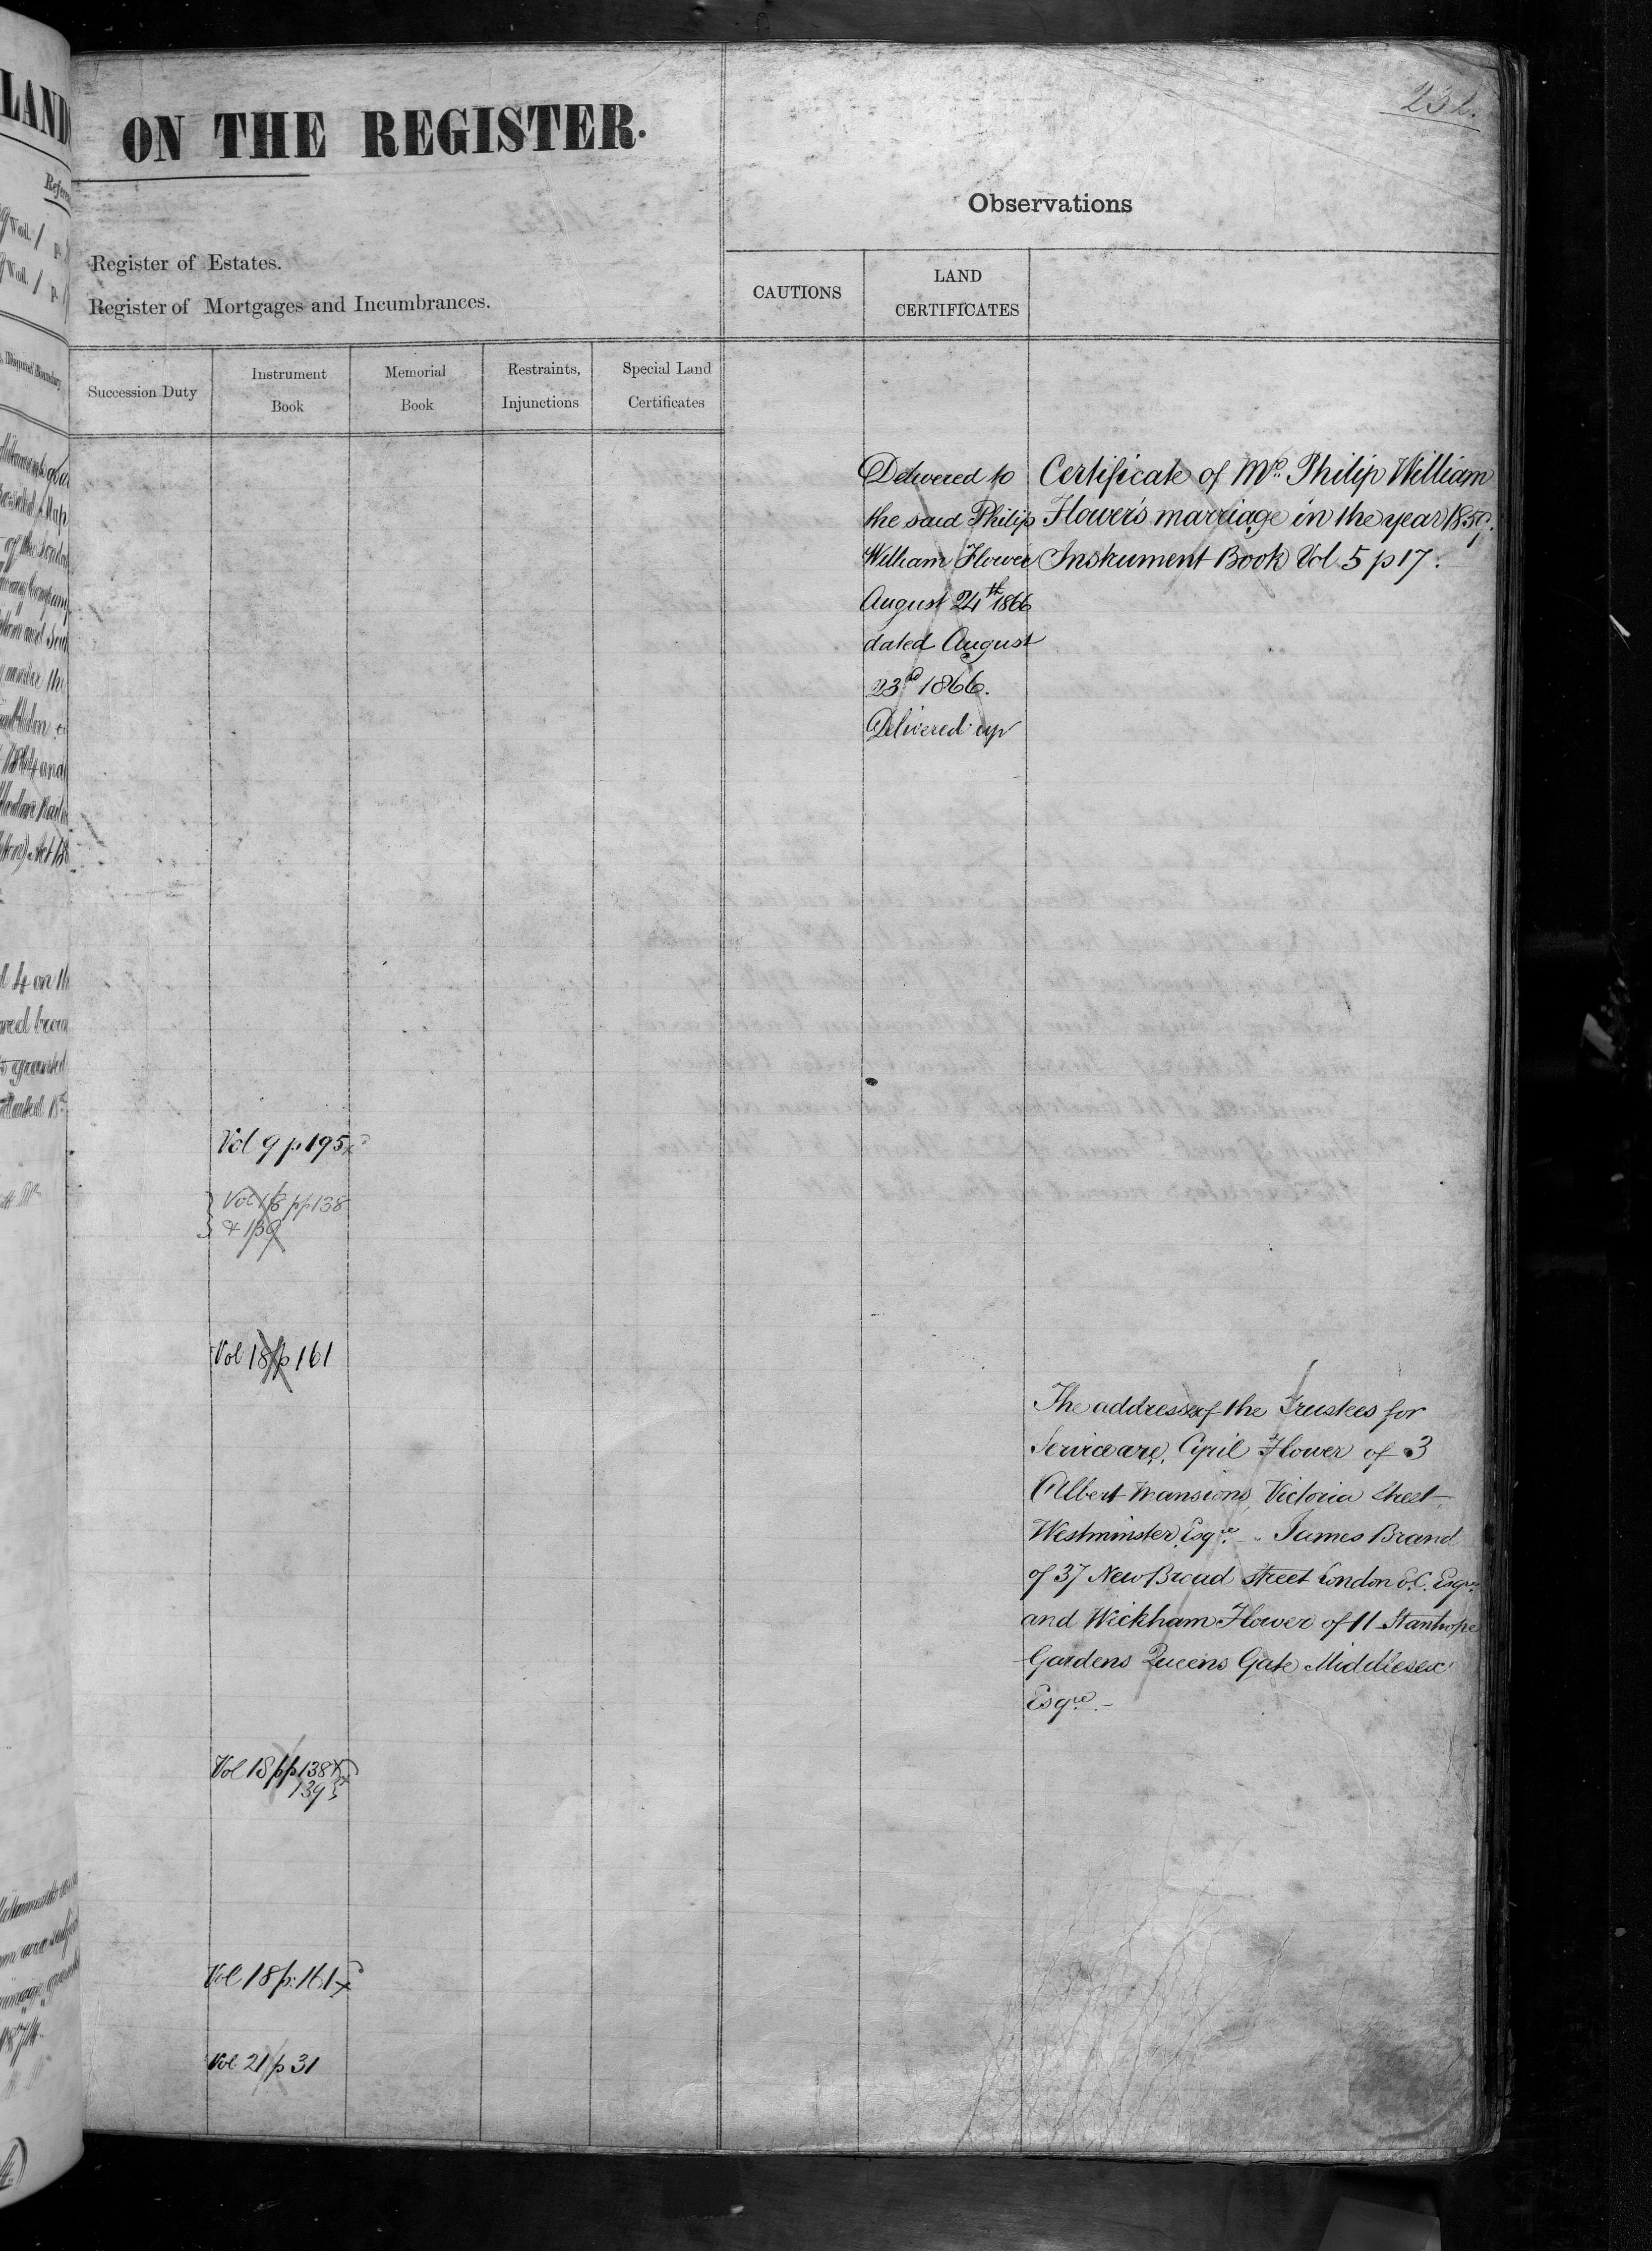 ON THE REGISTER.
Observations
Register of Estates.
Register of Mortgages and Incumbrances.
CAUTIONS
LAND
CERTIFICATES
Succession Duty
Instrument
Book
Memorial
Book
Restraints,
Injunctions
Special Land
Certificates
Delivered to
the said Philip
William Flower
August 24th 1866
dated August
23d 1866.
Delivered up
Certificate of Mr. Philip William
Flower's marriage in the year
Instrument Book Vol 5 p 17.
Vol 9 p 195
Vol 18 pp 138
& 139
Vol 18 p 161
The addresses of the Trustees for
Service are, Cyril Flower of 3
Albert Mansions, Victoria Street
Westminster, Esqre. James Brand
of 37 New Broad Street London E.C. Esqre
and Wickham Flower of 11 Stanhope
Gardens Queens Gate Middlesex
Esqre.-
Vol 18 pp 138
139
Vol 18 p. 161
Vol 21 p 31
LAND
Vol. 1 p.
Vol. 1 p.
Disputed Boundary
of the
Company
and
under the
1864 and
Act
4 on th
granted
1874